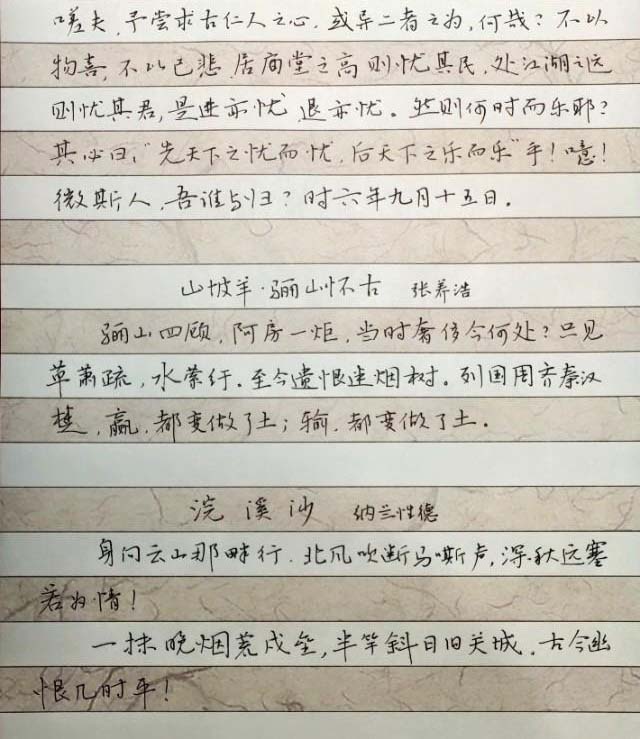 嗟夫，予尝求古仁人之心，或异二者之为，何哉？不以
物喜，不以己悲，居庙堂之高则忧其民，处江湖之远
则忧其君，是进亦忧，退亦忧。然则何时而乐耶？
其必曰，“先天下之忧而忧，后天下之乐而乐”乎！噫！
微斯人，吾谁与归？时六年九月十五日。
山坡羊·骊山怀古 张养浩
骊山四顾，阿房一炬，当时奢侈今何处？只见
草萧疏，水萦纡。至今遗恨迷烟树。列国周齐秦汉
楚，赢，都变做了土；输，都变做了土。
浣溪沙 纳兰性德
身向云山那畔行，北风吹断马嘶声，深秋远塞
若为情！
一抹晚烟荒戍垒，半竿斜日旧关城。古今幽
恨几时平！